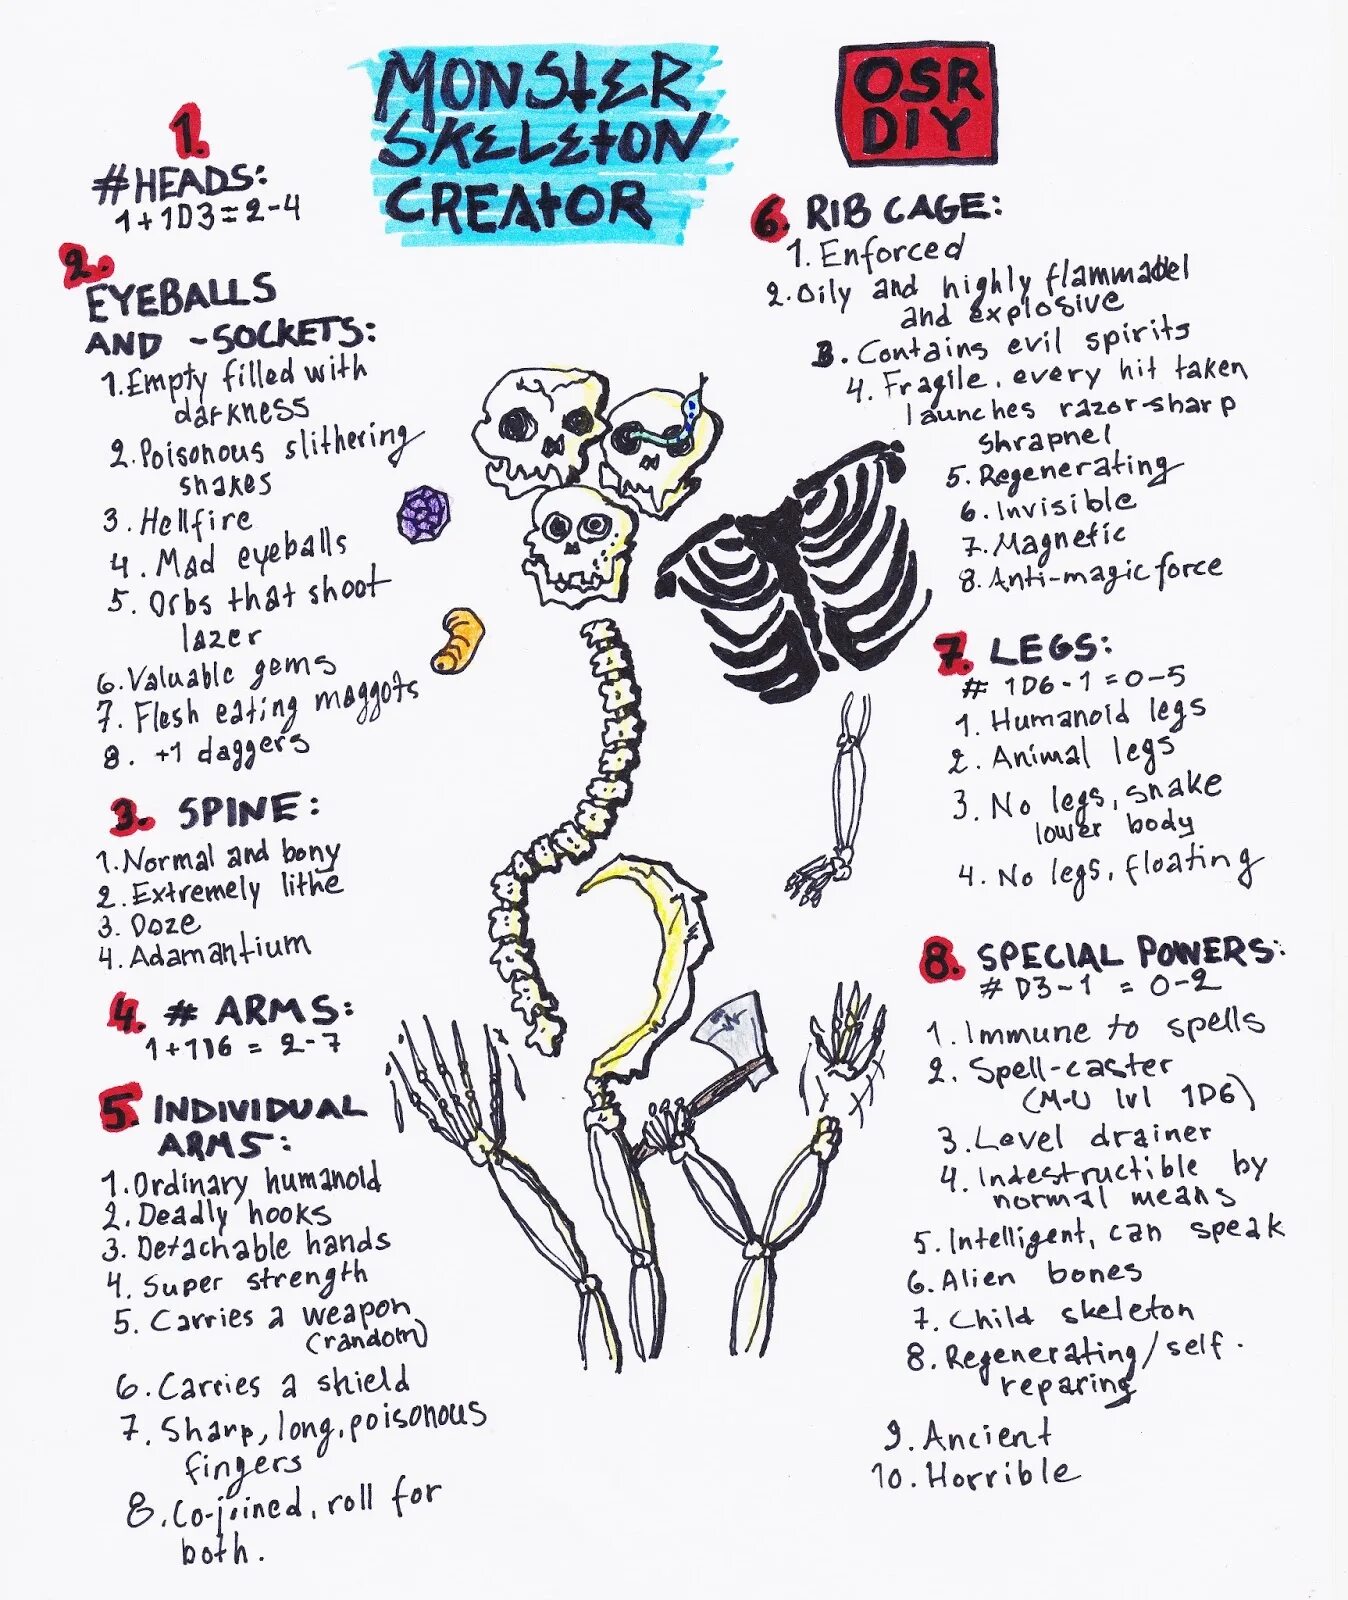 MONSTER
SKELETON
CREATOR
OSR
DIY
1.
#HEADS:
1+1D3=2-4
2.
EYEBALLS
AND -SOCKETS:
1. Empty filled with
darkness
2. Poisonous slithering
snakes
3. Hellfire
4. Mad eyeballs
5. Orbs that shoot
lazer
6. Valuable gems
7. Flesh eating maggots
8. +1 daggers
3. SPINE:
1. Normal and bony
2. Extremely lithe
3. Ooze
4. Adamantium
4. # ARMS:
1+1D6 = 2-7
5. INDIVIDUAL
ARMS:
1. Ordinary humanoid
2. Deadly hooks
3. Detachable hands
4. Super strength
5. Carries a weapon
(random)
6. Carries a shield
7. Sharp, long, poisonous
fingers
8. Co-joined, roll for
both.
6. RIB CAGE:
1. Enforced
2. Oily and highly flammabel
and explosive
3. Contains evil spirits
4. Fragile, every hit taken
launches razor-sharp
shrapnel
5. Regenerating
6. Invisible
7. Magnetic
8. Anti-magic force
7. LEGS:
# 1D6-1 = 0-5
1. Humanoid legs
2. Animal legs
3. No legs, snake
lower body
4. No legs, floating
8. SPECIAL POWERS:
# D3-1 = 0-2
1. Immune to spells
2. Spell-caster
(M-U lvl 1D6)
3. Level drainer
4. Indestructible by
normal means
5. Intelligent, can speak
6. Alien bones
7. Child skeleton
8. Regenerating/self-
reparing
9. Ancient
10. Horrible